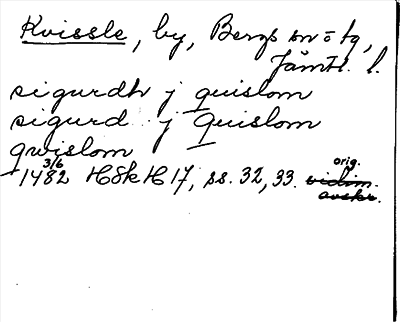 Kvissle, by, Bergs sn o tg,
Jämtl. l.
sigurdh j quislom
sigurd j Quislom
qwislom
1482 3/6 HSH 17, ss. 32, 33. orig.
vidim.
avskr.